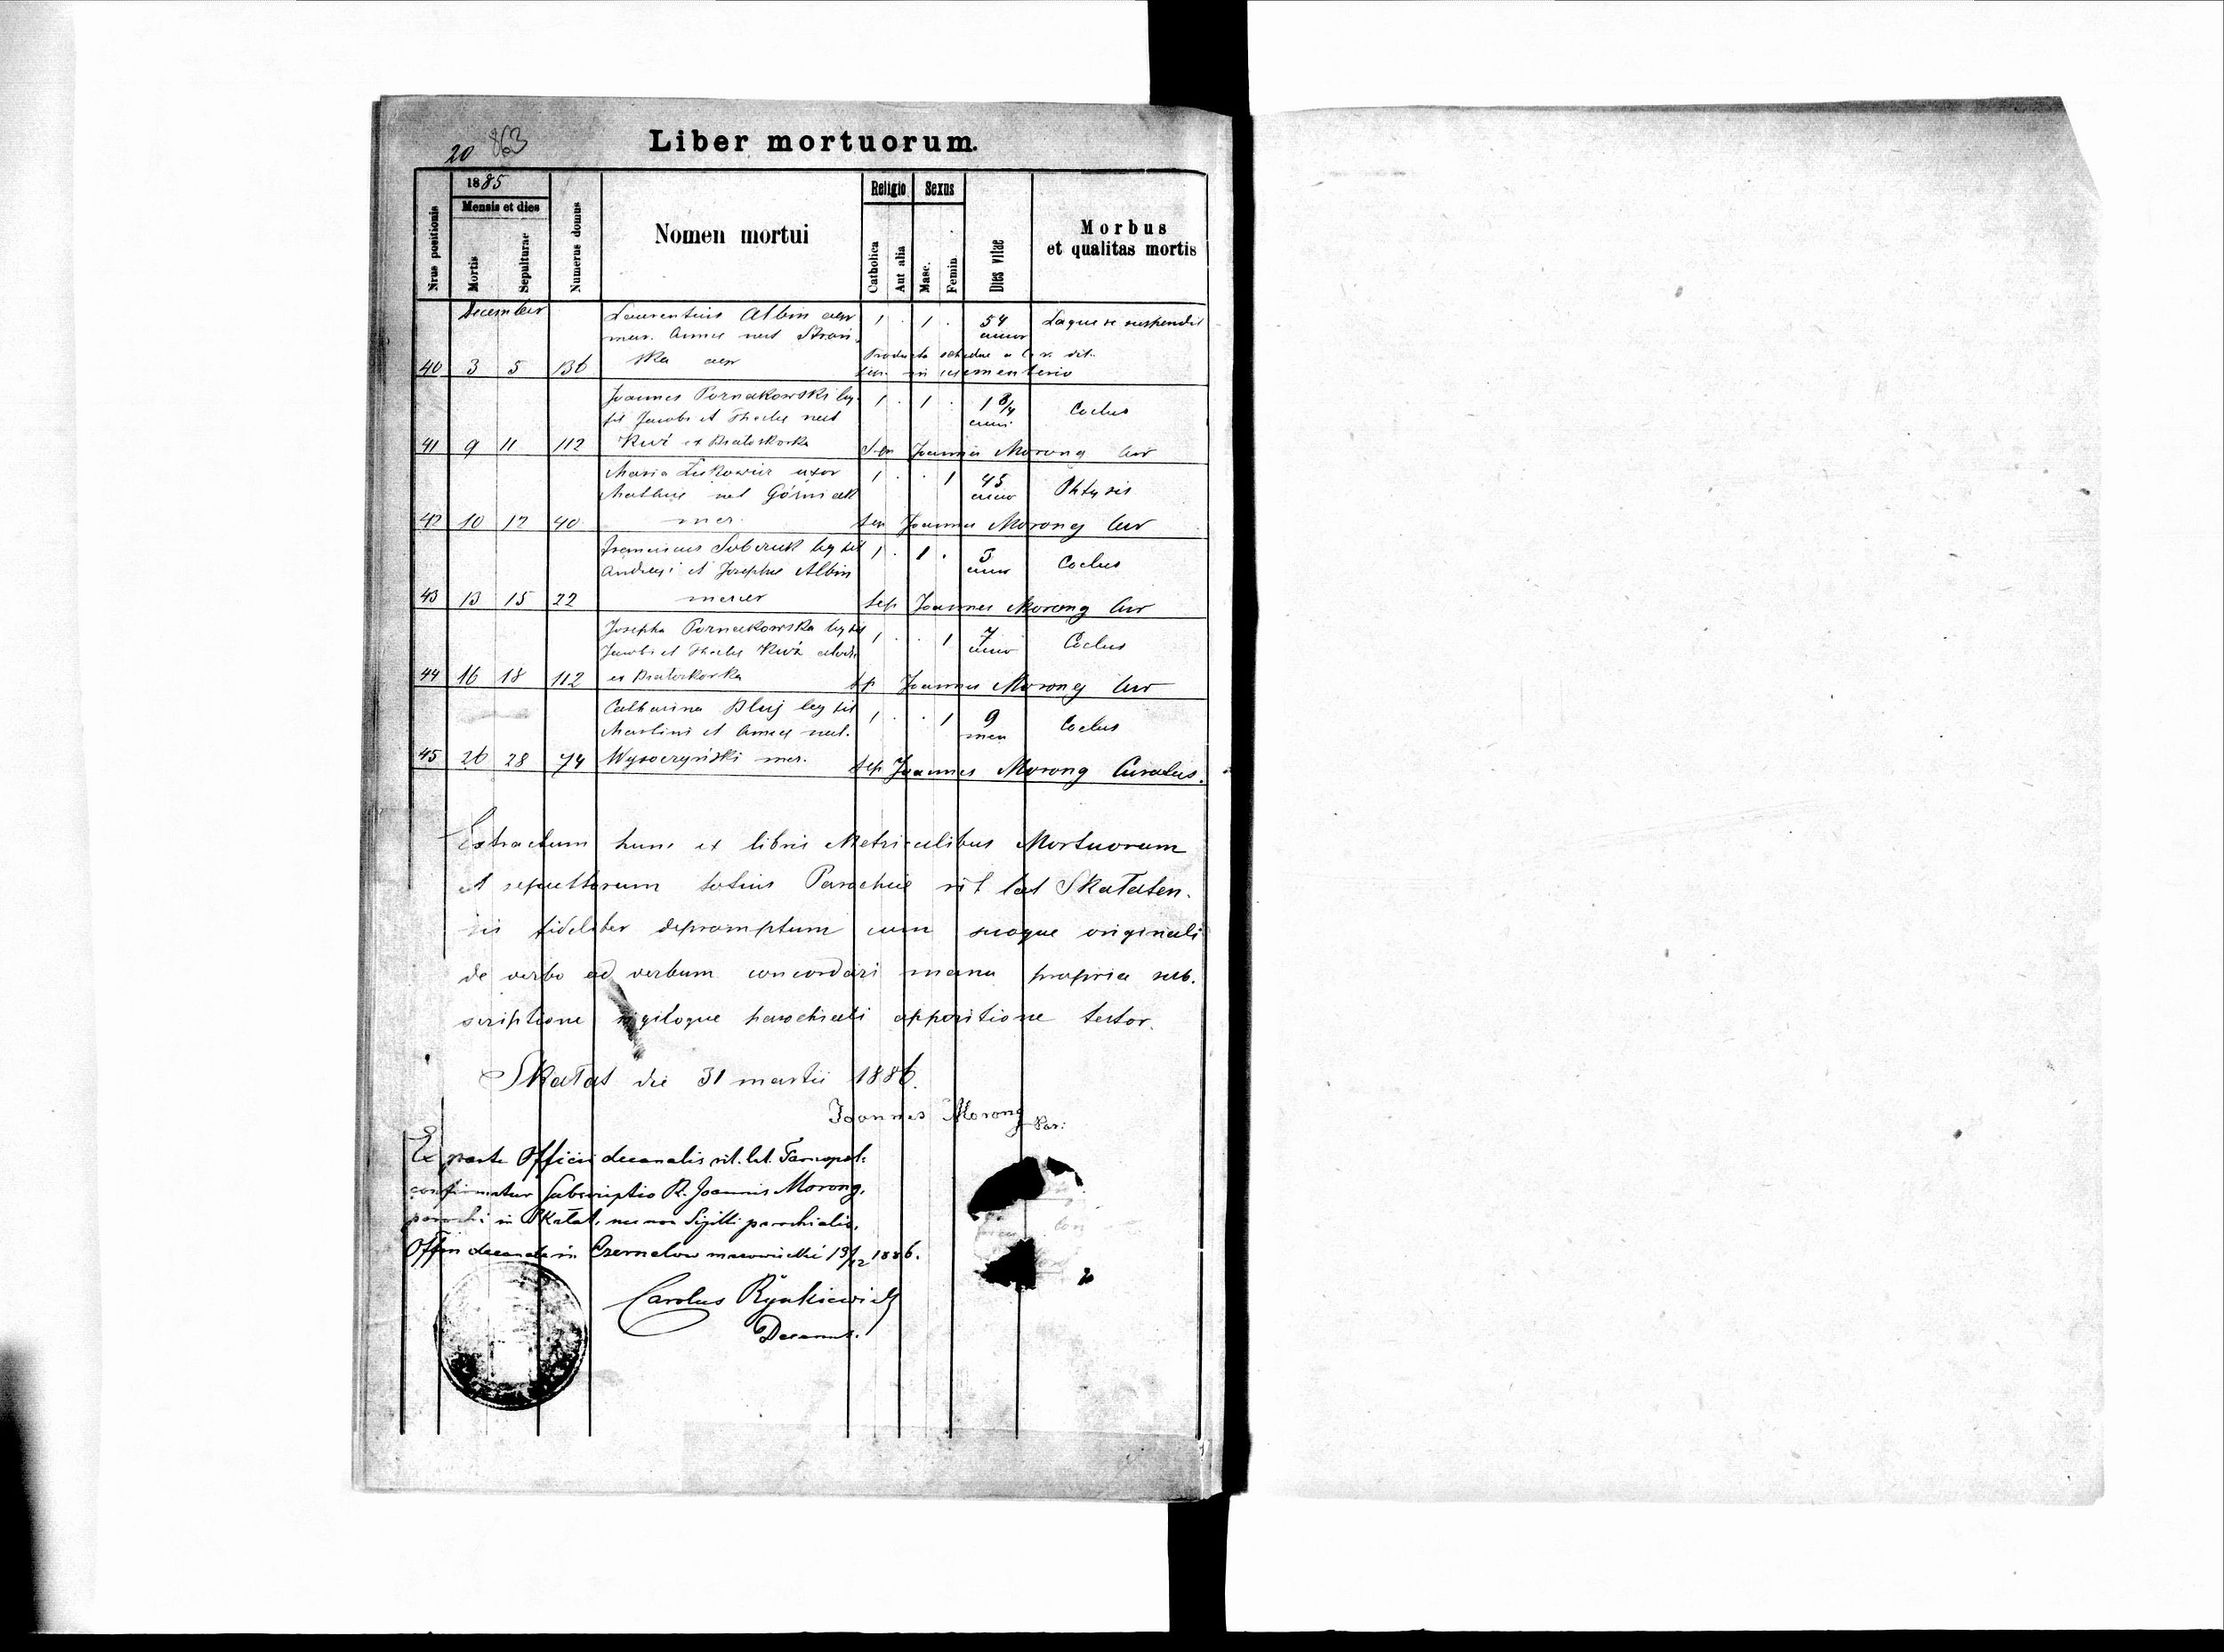 20 863
Liber mortuorum.
Nrus positionis
1885
Mensis et dies
Mortis
Sepulturae
Numerus domus
Nomen mortui
Religio
Catholica
Aut alia
Sexus
Masc.
Femin.
Dies vitae
Morbus
et qualitas mortis
December
Laurentius Albin agr 1 . 1 . 54 Laque se suspendit
mar. Annae nat Strań
ska agr
40 3 5 136
in cementerio
Joannes Pornakowski leg. 1 . 1 . 1 3/4 Coclus
fil Jacobi et Theclae nat
41 9 11 112
Sep Joannes Morong Cur
Maria Żukowicz uxor 1 . . 1 45 Phtysis
Mathiae nat Górniak
42 10 12 40 mer.
Sep Joannes Morong Cur
Franciscus Sobczuk leg fil 1 . 1 . 3 Coclus
Andreae et Josephae Albin
43 13 15 22
Sep Joannes Morong Cur
Josepha Pornakowska leg fil 1 . . 1 7 Coclus
Jacobi et Theclae
44 16 18 112
Sep Joannes Morong Cur
Catharina Bluj leg fil 1 . . 1 9 Coclus
Martini et Annae nat. men
45 26 28 74 Wysoczyński mer.
Sep Joannes Morong Curatus.
Extractum hunc ex libris Metricalibus Mortuorum
et sepultorum totius Parochiae rit lat Skałaten.
sis fideliter depromptum cum suoque originali
de verbo ad verbum concordari manu propria sub.
scriptione sigiloque parochiali appositione testor.
Skałat die 31 martii 1886.
Joannes Morong Par:
Ex parte Officii decanalis rit. lat. Tarnopol.
confirmatur subscriptio R. Joannis Morong,
parochi in Skałat, nec non Sigilli parochialis.
Offin decanale in Czernelow mazowiecki 13/12 1886.
Carolus
Decanus.